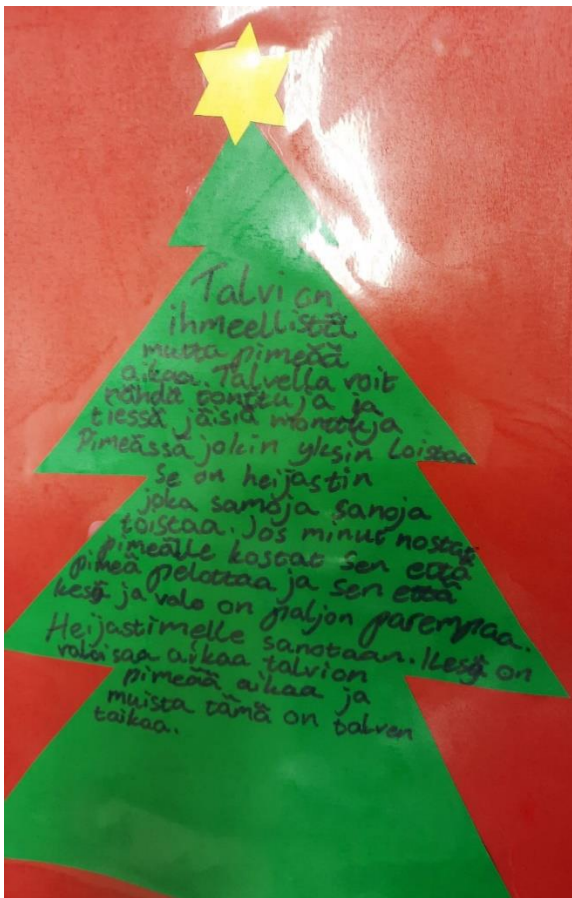 Talvi on
ihmeellistä
mutta pimeää
aikaa. Talvella voit
nähdä tonttuja ja
tiessä jäisiä monttuja
Pimeässä jokin yksin loistaa
Se on heijastin
joka samoja sanoja
toistaa. Jos minut nostat
pimeälle kostat sen että
pimeä pelottaa ja sen että
kesä ja valo on paljon parempaa.
Heijastimelle sanotaan. Kesä on
valoisaa aikaa talvi on
pimeää aikaa ja
muista tämä on talven
taikaa.